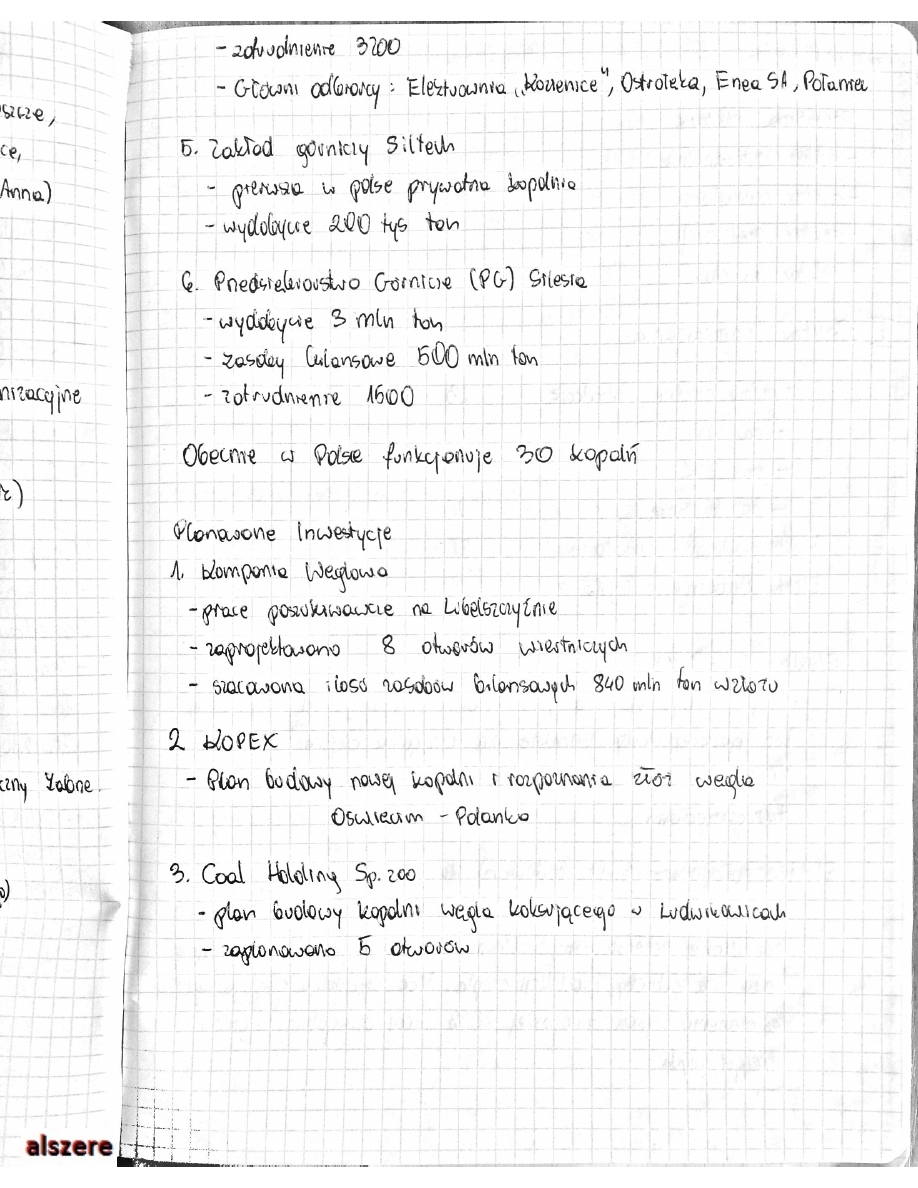 - zatrudnienie 3200
- Główni odbiorcy: Elektrownia „Kozienice”, Ostrołęka, Enea SA, Połaniec
5. Zakład górniczy Siltech
- pierwsza w polsce prywatna kopalnia
- wydobycie 200 tys ton
6. Przedsiebiorstwo Górnicze (PG) Silesia
- wydobycie 3 mln ton
- zasoby bilansowe 500 mln ton
- zatrudnienie 1500
Obecnie w Polsce funkcjonuje 30 kopalń
Planowane inwestycje
1. Kompania Węglowa
- prace poszukiwawcze na Lubelszczyźnie
- zaprojektowano 8 otworów wiertniczych
- szacowana ilość zasobów bilansowych 840 mln ton w złożu
2 KOPEX
- Plan budowy nowej kopalni i rozpoznania złóż węgla
Oświęcim - Polanka
3. Coal Holding Sp. zoo
- plan budowy kopalni węgla koksującego w Ludwikowicach
- zaplanowano 5 otworów
szcze,
ce,
Anna)
nizacyjne
czny
alszere